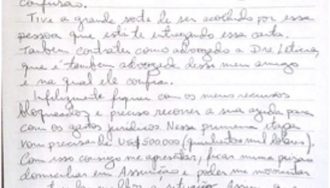 confusão.
Tive a grande sorte de ser acolhido por essa
pessoa que está te entregando essa carta.
Também contratei como advogada a Dra. Leticia,
que é também advogada desse meu amigo
e na qual ele confia.
Infelizmente fiquei com os meus recursos
bloqueados e preciso recorrer a sua ajuda para
com os gastos jurídicos. Nessa primeira etapa
vou precisar de U$ 500.000 (quinhentos mil dólares)
Com isso consigo me apresentar, ficar numa prisão
domiciliar em Assunción e poder me movimentar